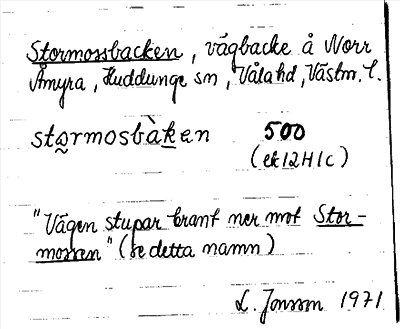 Stormossbacken, vägbacke å Norr
Åmyra, Huddunge sn, Våla hd, Västm. l.
sto̰rmosbàk̲en 500
(ek 12H1c)
"Vägen stupar brant ner mot Stor-
mossen" (se detta namn)
L. Jonsson 1971